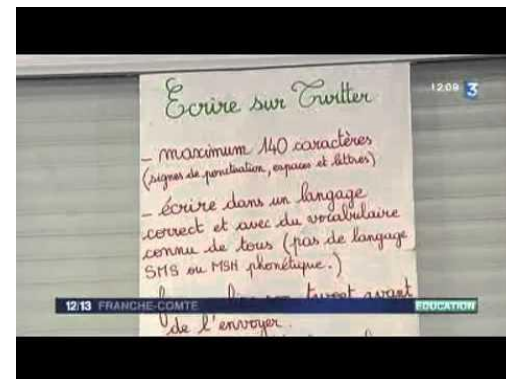 Ecrire sur Twitter
12:09 3
- maximum 140 caractères
(signes de ponctuation, espaces et lettres)
- écrire dans un langage
correct et avec du vocabulaire
connu de tous (pas de langage
SMS ou MSN phonétique.)
tweet avant
12/13 FRANCHE-COMTE
EDUCATION
de l'envoyer.